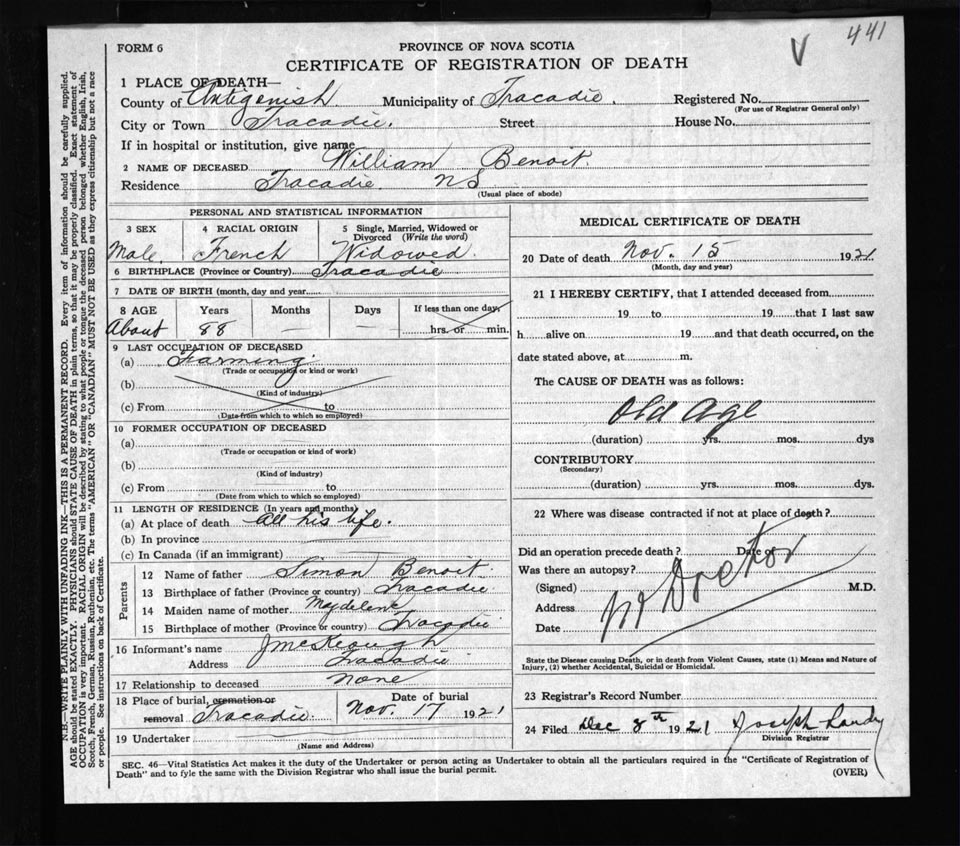 441
V
FORM 6
PROVINCE OF NOVA SCOTIA
CERTIFICATE OF REGISTRATION OF DEATH
1 PLACE OF DEATH—
County of Antigonish. Municipality of Tracadie. Registered No.
(For use of Registrar General only)
City or Town Tracadie. Street House No.
If in hospital or institution, give name
2 NAME OF DECEASED William Benoit.
Residence Tracadie. NS
(Usual place of abode)
PERSONAL AND STATISTICAL INFORMATION
3 SEX 4 RACIAL ORIGIN 5 Single, Married, Widowed or Divorced (Write the word)
Male. French Widowed.
6 BIRTHPLACE (Province or Country) Tracadie
7 DATE OF BIRTH (month, day and year)
8 AGE Years Months Days If less than one day,
About 88 — — hrs. or min.
9 LAST OCCUPATION OF DECEASED
(a) Farming.
(Trade or occupation or kind or work)
(b)
(Kind of industry)
(c) From to
(Date from which to which so employed)
10 FORMER OCCUPATION OF DECEASED
(a)
(Trade or occupation or kind of work)
(b)
(Kind of industry)
(c) From to
(Date from which to which so employed)
11 LENGTH OF RESIDENCE (In years and months)
(a) At place of death all his life.
(b) In province
(c) In Canada (if an immigrant)
Parents
12 Name of father Simon Benoit.
13 Birthplace of father (Province or country) Tracadie
14 Maiden name of mother Magdelene
15 Birthplace of mother (Province or country) Tracadie
16 Informant's name J McKeough
Address Tracadie
17 Relationship to deceased None
18 Place of burial, cremation or removal Tracadie. Date of burial Nov. 17 1921
19 Undertaker
(Name and Address)
MEDICAL CERTIFICATE OF DEATH
20 Date of death Nov. 15 1921
(Month, day and year)
21 I HEREBY CERTIFY, that I attended deceased from
19 to 19 that I last saw
h alive on 19 and that death occurred, on the
date stated above, at m.
The CAUSE OF DEATH was as follows:
Old Age
(duration) yrs. mos. dys
CONTRIBUTORY
(Secondary)
(duration) yrs. mos. dys.
22 Where was disease contracted if not at place of death?
Did an operation precede death? Date of
Was there an autopsy?
(Signed) M.D.
Address
Date
Doctor
State the Disease causing Death, or in death from Violent Causes, state (1) Means and Nature of
Injury, (2) whether Accidental, Suicidal or Homicidal.
23 Registrar's Record Number
24 Filed Dec 8th 1921 Joseph Landry
Division Registrar
SEC. 46—Vital Statistics Act makes it the duty of the Undertaker or person acting as Undertaker to obtain all the particulars required in the "Certificate of Registration of
Death" and to fyle the same with the Division Registrar who shall issue the burial permit. (OVER)
N.B.—WRITE PLAINLY WITH UNFADING INK—THIS IS A PERMANENT RECORD. Every item of information should be carefully supplied.
AGE should be stated EXACTLY. PHYSICIANS should STATE CAUSE OF DEATH in plain terms, so that it may be properly classified. Exact statement of
OCCUPATION is very important. RACIAL ORIGIN will be described by stating to what people or tongue the deceased person belonged whether English, Irish,
Scotch, French, German, Russian, Ruthenian, etc. The terms "AMERICAN" OR "CANADIAN" MUST NOT BE USED as they express citizenship but not a race
or people. See instructions on back of Certificate.